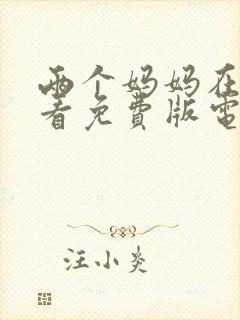 两个妈妈在
看免費版電
汪小炎